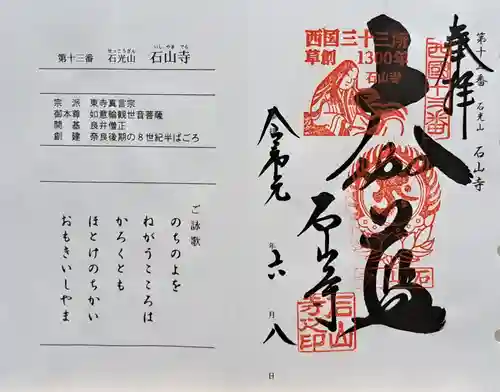 せっこうざん いし やま でら
第十三番 石光山 石山寺
宗 派 東寺真言宗
御本尊 如意輪観世音菩薩
開 基 良弁僧正
創 建 奈良後期の8世紀半ばごろ
ご詠歌
のちのよを
ねがうこころは
かろくとも
ほとけのちかい
おもきいしやま
第十三番 石光山 石山寺
奉拝
西国十三番
西国三十三所
草創 1300年
石山寺
大伽藍
石山寺
令和元年六月八日